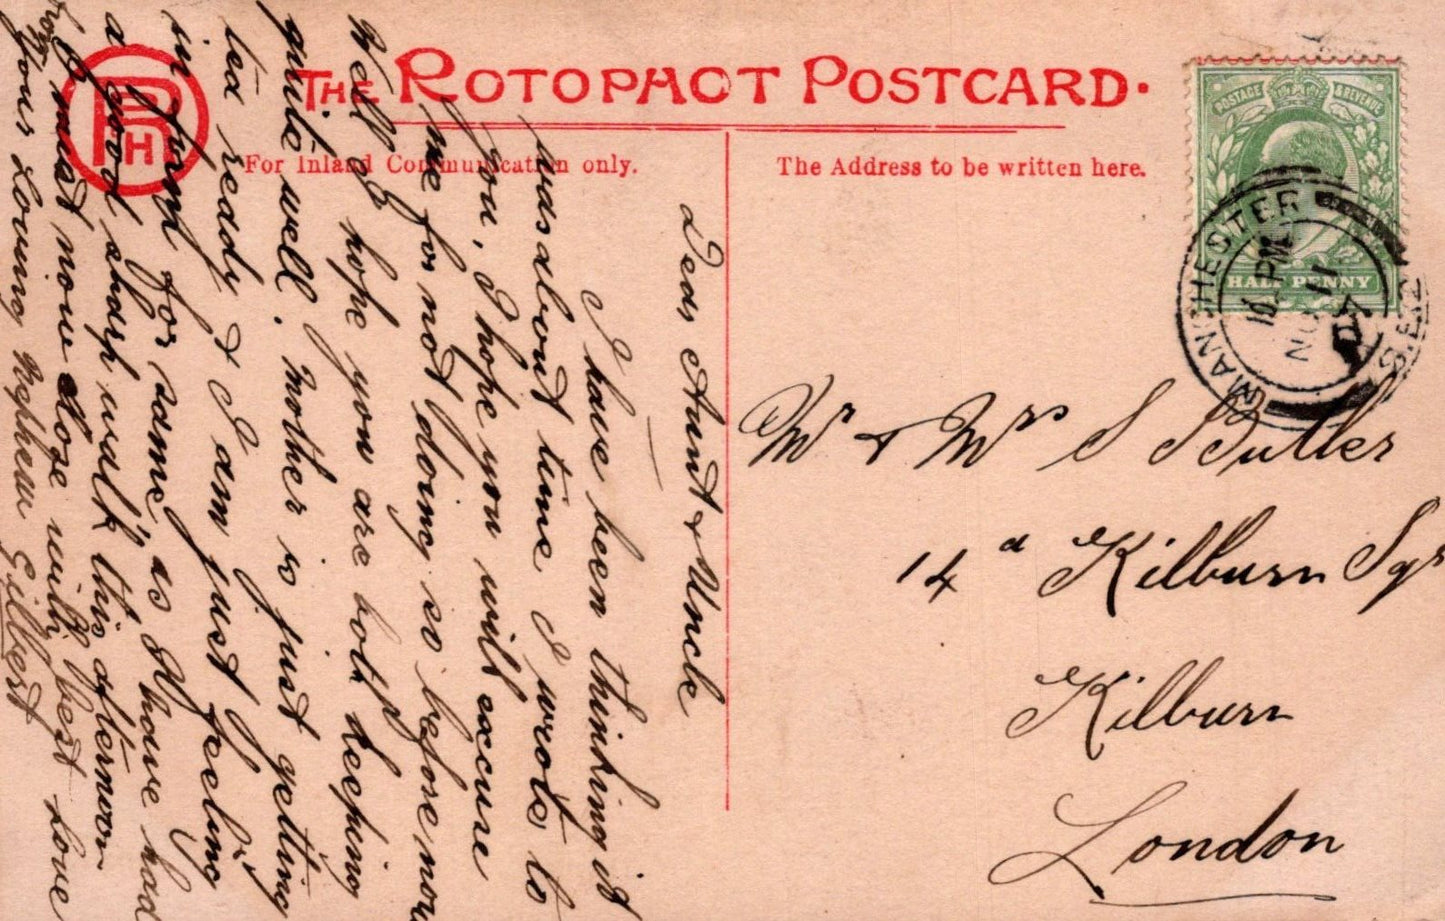 THE ROTOPHOT POSTCARD.
RPH
For Inland Communication only.
The Address to be written here.
POSTAGE & REVENUE
HALF PENNY
MANCHESTER S.E.
11 PM
NO 11
07
Mr & Mrs S Butler
14a Kilburn Sqr
Kilburn
London
Dear Aunt & Uncle
I have been thinking it
was about time I wrote to
you, I hope you will excuse
me for not doing so before now
Well I hope you are both keeping
quite well. mother is just getting
tea ready & I am just feeling
in form for same, as I have had
a good sharp walk this afternoon
I must now close with best love
from
your Loving Nephew Gilbert